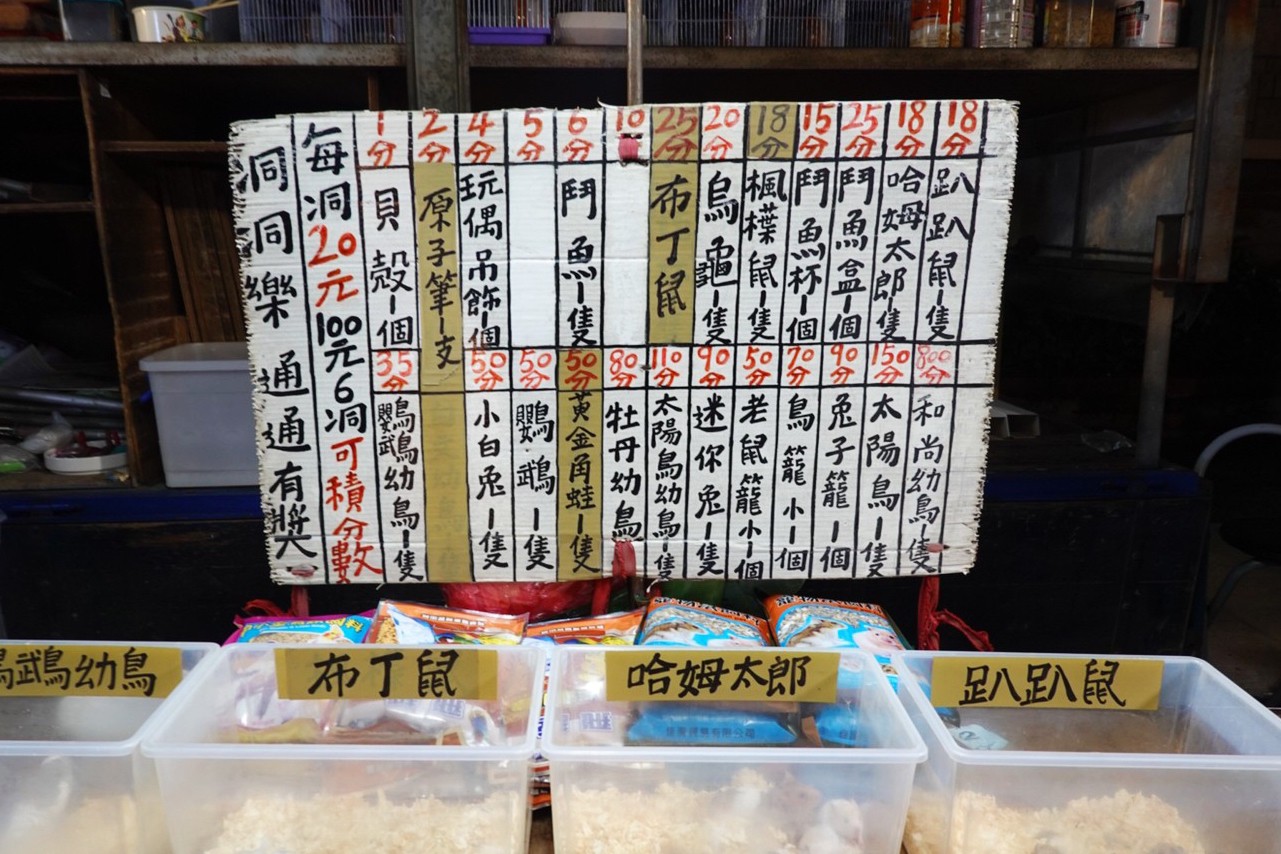 洞洞樂 通通有獎
每洞20元100元6洞可積分數
1分 貝殼一個
2分 原子筆一支
4分 玩偶吊飾一個
5分
6分 鬥魚一隻
10分
25分 布丁鼠
20分 烏龜一隻
18分 楓楪鼠一隻
15分 鬥魚杯一個
25分 鬥魚盒一個
18分 哈姆太郎一隻
18分 趴趴鼠一隻
35分 鸚鵡幼鳥一隻
50分 小白兔一隻
50分 鸚鵡一隻
50分 黃金角蛙一隻
80分 牡丹幼鳥
110分 太陽鳥幼鳥一隻
90分 迷你兔一隻
50分 老鼠籠小一個
70分 鳥籠小一個
90分 兔子籠一個
150分 太陽鳥一隻
800分 和尚幼鳥一隻
鵡幼鳥
布丁鼠
哈姆太郎
趴趴鼠